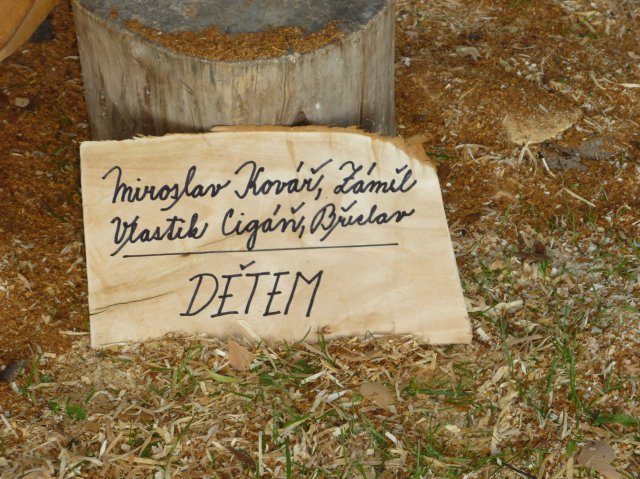 Miroslav Kovář, Záměl
Vlastik Cigáň, Břeclav
DĚTEM